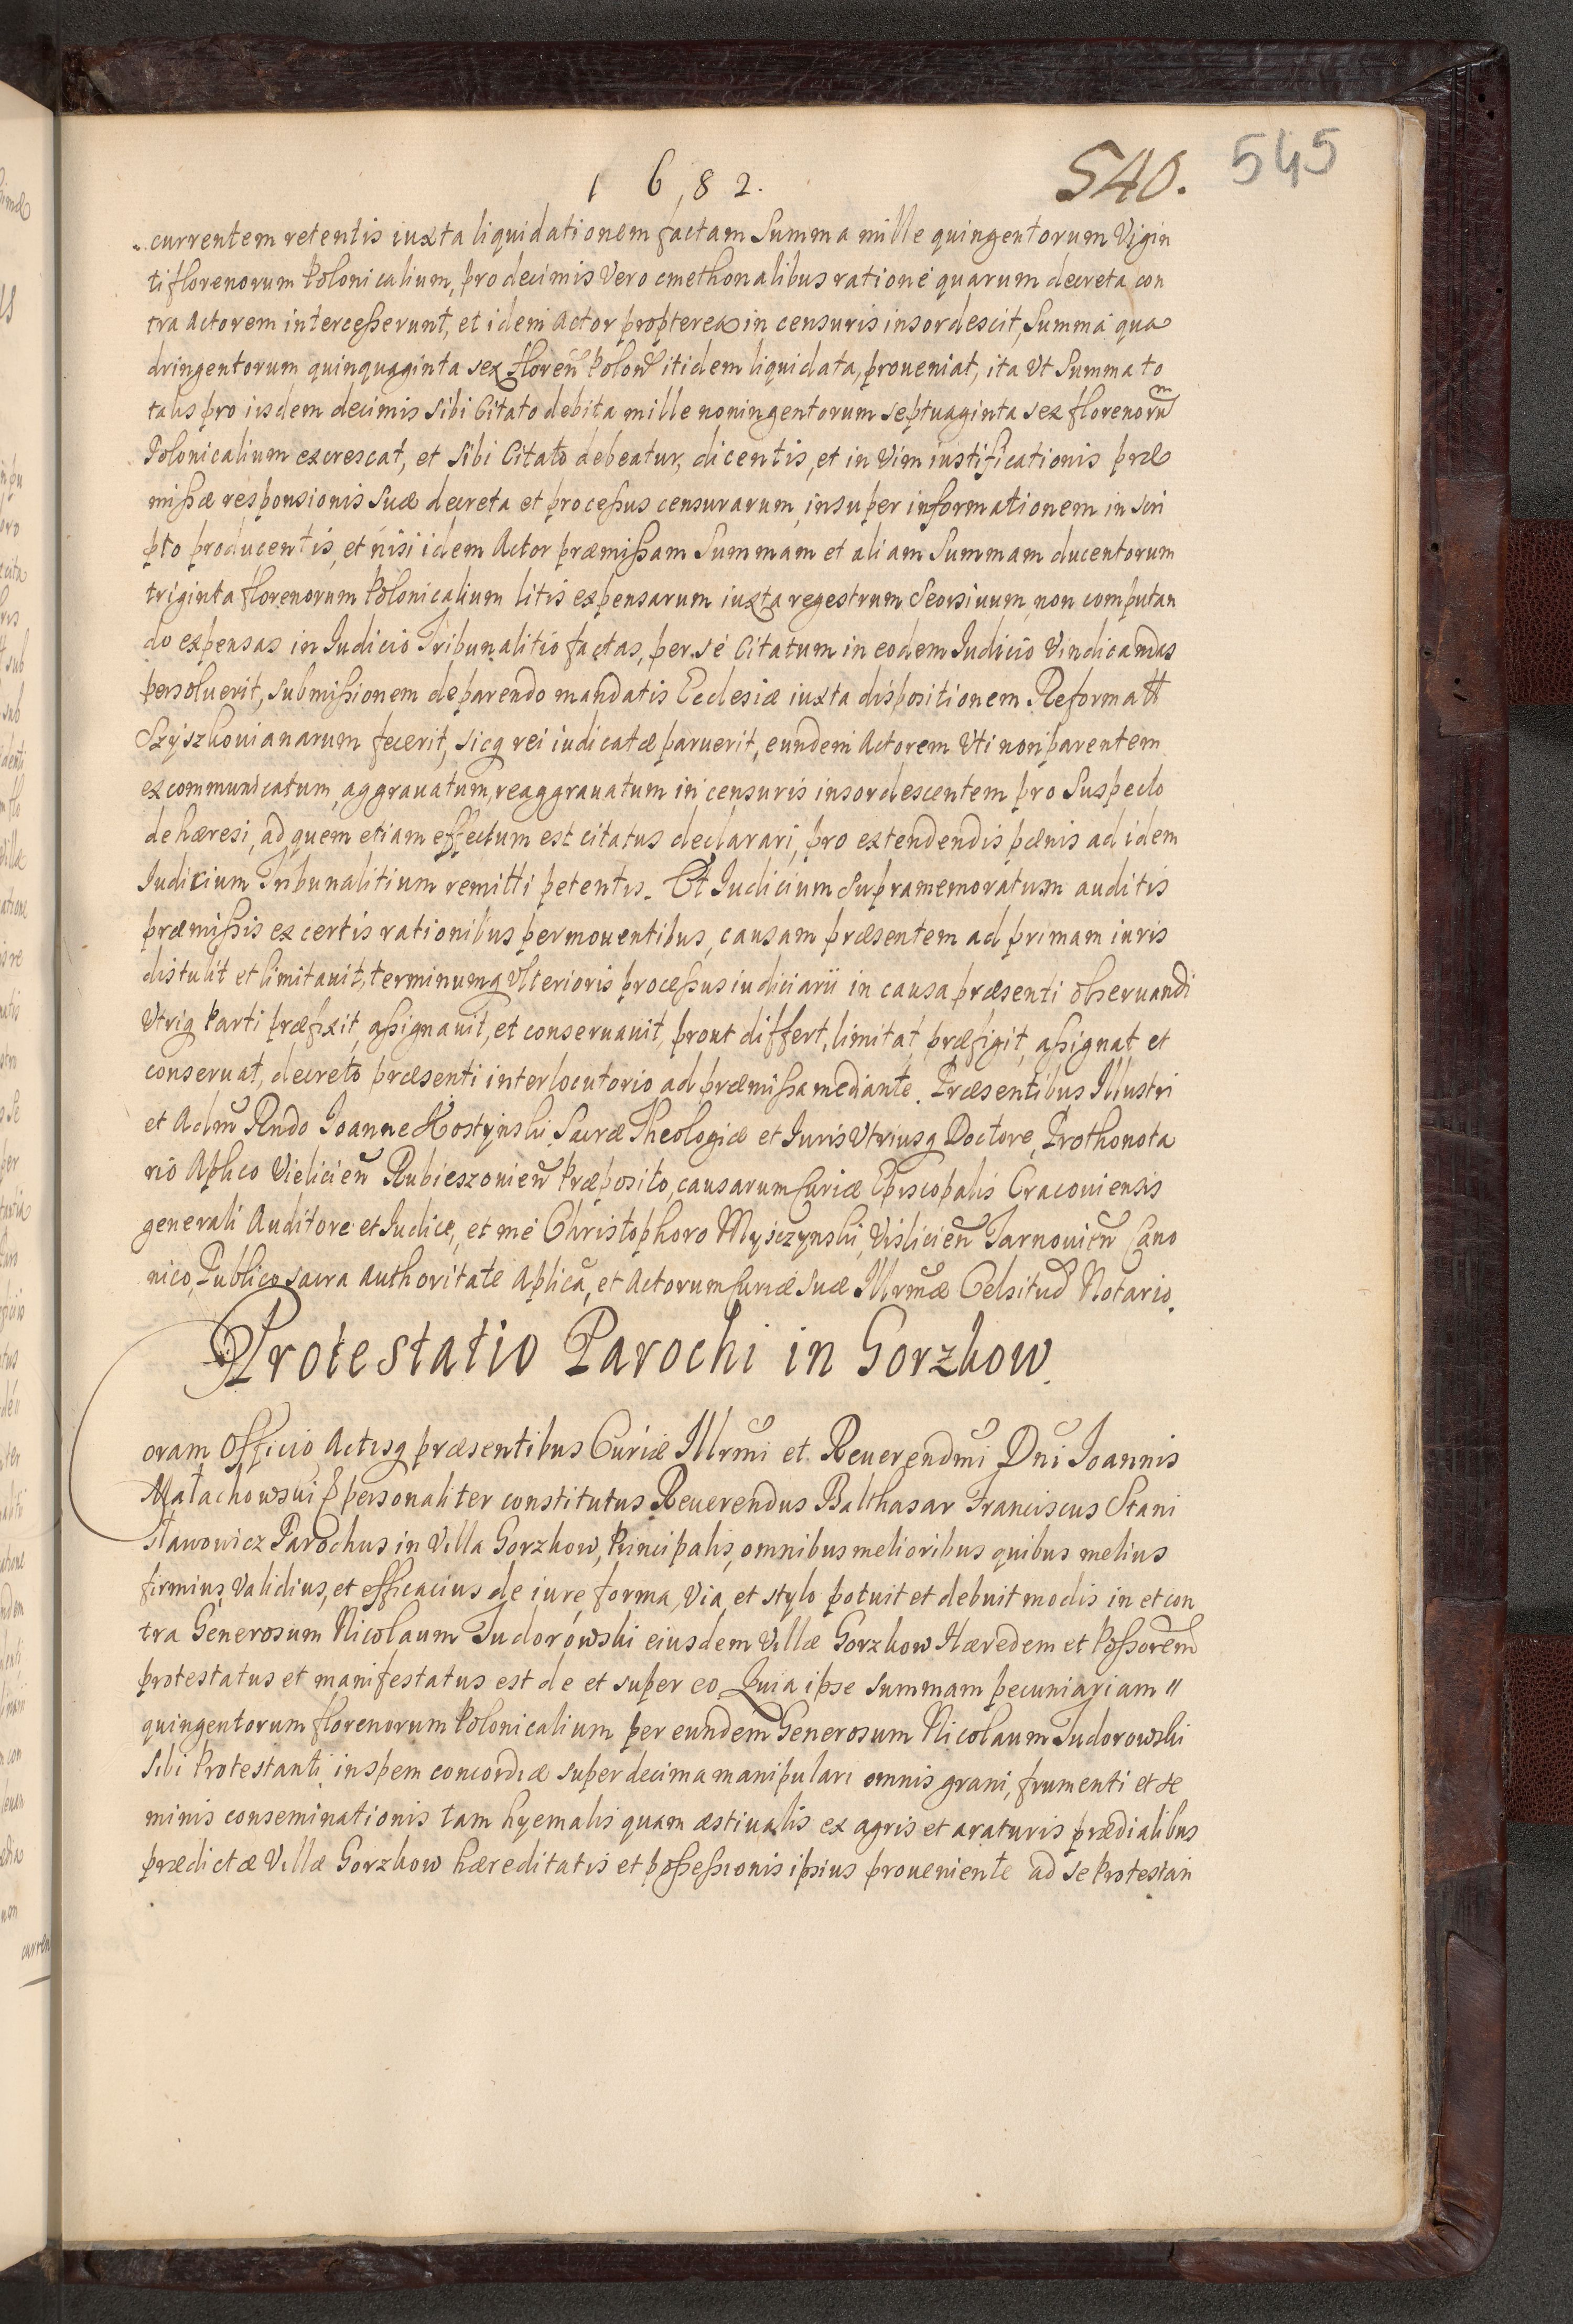 1682.
540.
545
currentem retentis iuxta liquidationem factam Summa mille quingentorum Vigin
ti florenorum Polonicalium, pro decimis Vero cmethonalibus ratione quarum decreta con
tra Actorem intercesserunt, et idem Actor propterea in censuris insordescit, Summa qua
dringentorum quinquaginta sex floren Polon itidem liquidata, proueniat, ita Vt Summa to
talis pro iisdem decimis Sibi Citato debita mille noningentorum septuaginta sex florenorum
Polonicalium excrescat, et Sibi Citato debeatur, dicentis, et in Vim iustificationis præ
missæ responsionis Suæ decreta et processus censurarum, insuper informationem in scri
pto producentis, et nisi idem Actor præmissam Summam et aliam Summam ducentorum
triginta florenorum Polonicalium litis expensarum iuxta regestrum Seorsiuum, non computan
do expensas in Iudicio Tribunalitio factas, per se Citatum in eodem Iudicio Vindicandas
persoluerit, submissionem de parendo mandatis Ecclesiæ iuxta dispositionem Reformatt
Szyszkouianarum fecerit, sicq rei iudicatæ paruerit, eundem Actorem Vti non parentem
excommunicatum, aggrauatum, reaggrauatum in censuris insordescentem pro Suspecto
de hæresi, ad quem etiam effectum est citatus declarari, pro extendendis pænis ad idem
Iudicium Tribunalitium remitti petentis. Et Iudicium Supramemoratum auditis
præmissis ex certis rationibus permouentibus, causam præsentem ad primam iuris
distulit et limitauit, terminumq Vlterioris processus iudiciarii in causa præsenti obseruandi
Vtriq Parti præfixit, assignauit, et conseruauit, prout differt, limitat, præfigit, assignat, et
conseruat, decreto præsenti interlocutorio ad præmissa mediante. Præsentibus Illustri
et Adm Rndo Ioanne Hostynski Sacræ Theologiæ et Iuris Vtriusq Doctore, Prothonota
rio Aplico Vielicien Rubieszouien Præposito, causarum Curiæ Episcopalis Cracouiensis
generali Auditore et Iudice, et me Christophoro Myszzynski, Vislicien Tarnouien Cano
nico, Publico sacra authoritate Aplica, et Actorum Curiæ Suæ Illrmæ Celsitud Notario.
Protestatio Parochi in Gorzkow.
Coram Officio, Actisq præsentibus Curiæ Illrmi et Reuerendmi Dni Ioannis
Małachowski personaliter constitutus Reuerendus Balthasar Franciscus Stani
sławowicz Parochus in Villa Gorzkow, Principalis, omnibus melioribus quibus melius
firmius, Validius, et efficacius de iure, forma, Via, et stylo potuit et debuit modis in et con
tra Generosum Nicolaum Tudorowski eiusdem Villæ Gorzkow Hæredem et Possorem
protestatus et manifestatus est de et super eo, Quia ipse summam pecuniariam "
quingentorum florenorum Polonicalium per eundem Generosum Nicolaum Tudorowski
Sibi Protestanti in spem concordiæ super decima manipulari omnis grani, frumenti et se
minis conseminationis tam hyemalis quam æstiualis ex agris et araturis prædialibus
prædictæ Villæ Gorzkow hæreditatis et possessionis ipsius proueniente ad se Protestan